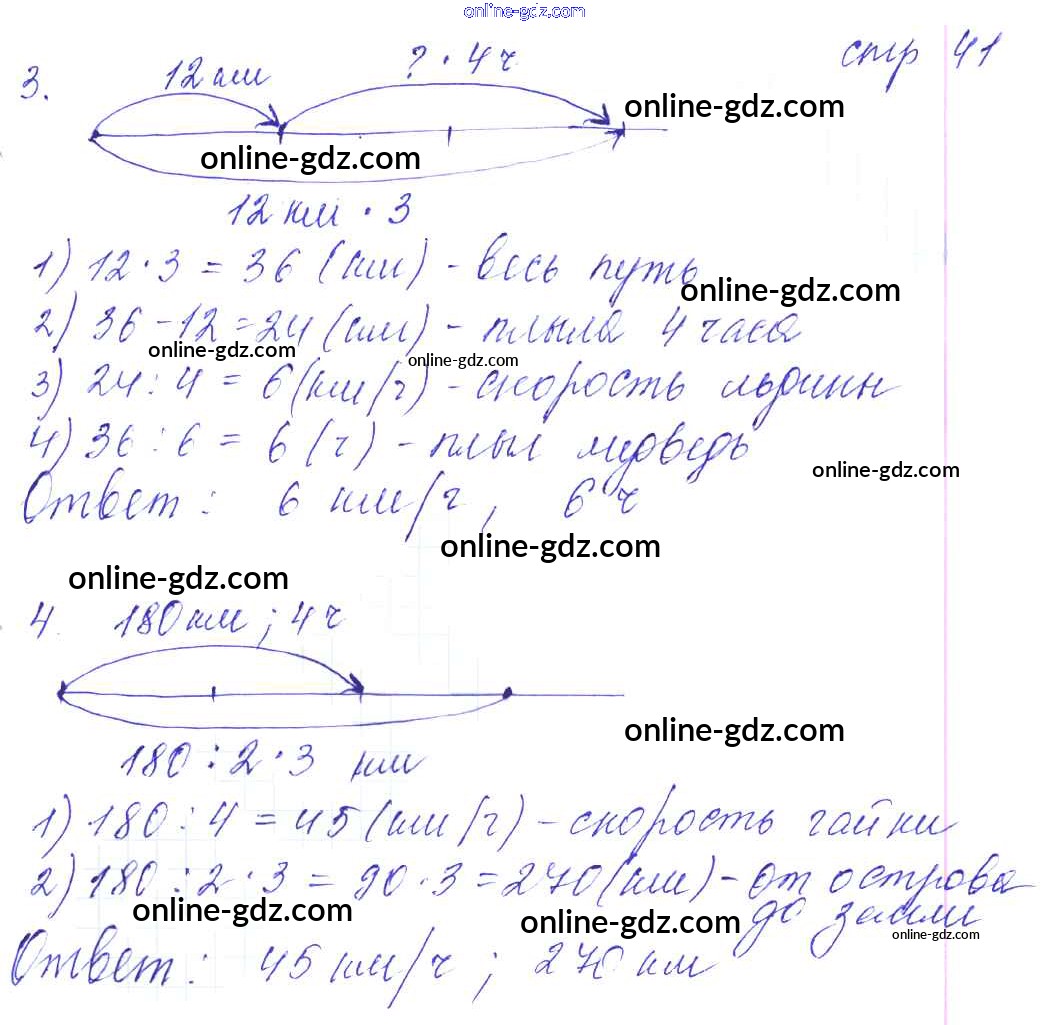 online-gdz.com
стр 41
3.
12 км
? · 4 ч
online-gdz.com
online-gdz.com
12 км · 3
1) 12 · 3 = 36 (км) - весь путь
online-gdz.com
2) 36 - 12 = 24 (км) - плыла 4 часа
online-gdz.com
online-gdz.com
3) 24 : 4 = 6 (км/ч) - скорость льдины
4) 36 : 6 = 6 (ч) - плыл медведь
online-gdz.com
Ответ: 6 км/ч, 6 ч
online-gdz.com
online-gdz.com
4. 180 км ; 4 ч
online-gdz.com
180 : 2 · 3 км
1) 180 : 4 = 45 (км/ч) - скорость гайки
2) 180 : 2 · 3 = 90 · 3 = 270 (км) - от острова
до земли
online-gdz.com
online-gdz.com
online-gdz.com
Ответ: 45 км/ч ; 270 км